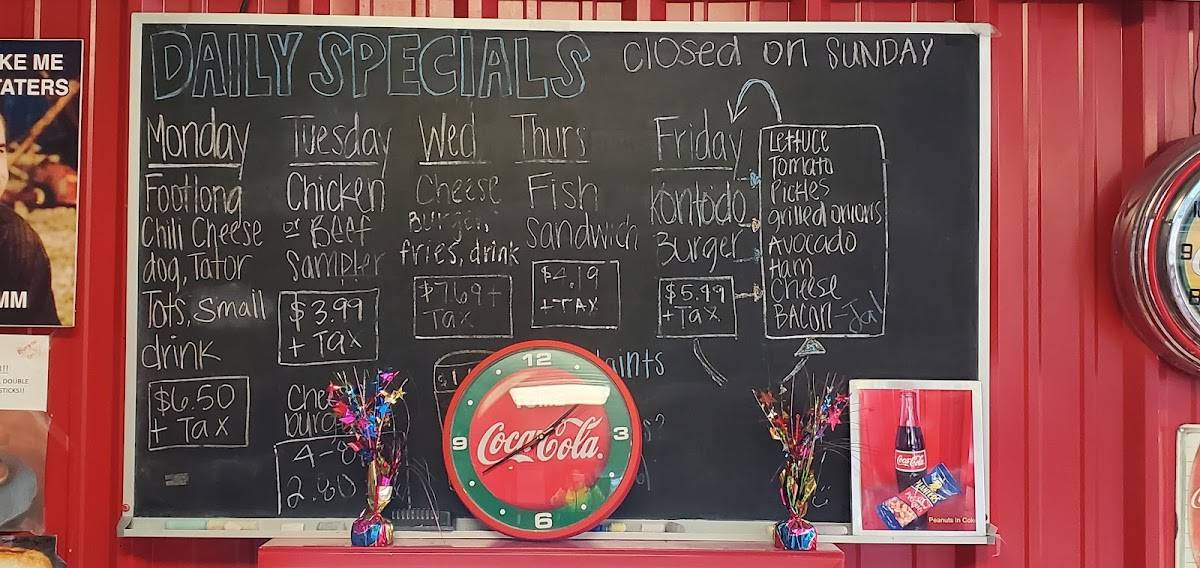 DAILY SPECIALS
closed on SUNDAY
Monday
Footlong
Chili Cheese
dog, Tator
Tots, Small
drink
$6.50
+ Tax
Tuesday
Chicken
or BEEF
Sampler
$3.99
+ Tax
Wed
Cheese
Burger,
fries, drink
$7.69+
Tax
Thurs
Fish
Sandwich
$4.19
+ TAX
Friday
Kontodo
Burger
$5.49
+ Tax
Lettuce
Tomato
Pickles
grilled onions
Avocado
Ham
Cheese
BACON - Jal
2.80
12
3
6
9
Coca-Cola
KE ME
ATERS
MM
!!!
DOUBLE
STICKS!!
Coca-Cola
PLANTERS
Peanuts in Coke
9